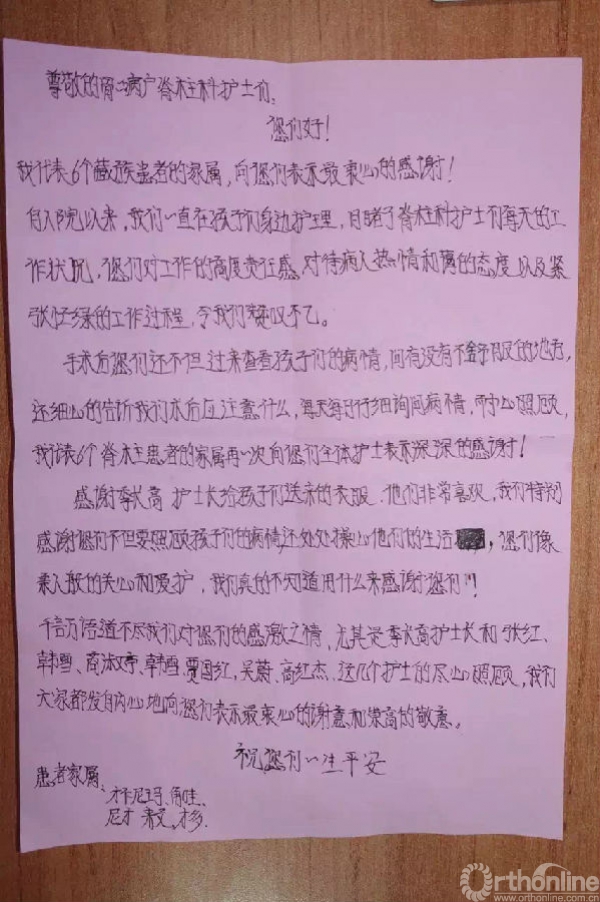 尊敬的骨二病户脊柱科护士们:
您们好!
我代表6个藏族患者的家属,向您们表示最衷心的感谢!
自入院以来,我们一直在孩子们身边护理,目睹了脊柱科护士们每天的工
作状况,您们对工作的高度责任感,对待病人热情和蔼的态度以及紧
张忙绿的工作过程,令我们赞叹不已。
手术后您们还不但过来查看孩子们的病情,问有没有不舒服的地方,
还细心的告诉我们术后应注意什么,每天每日仔细询问病情,耐心照顾,
我代表6个脊柱患者的家属再一次向您们全体护士表示深深的感谢!
感谢李长高护士长给孩子们送来的衣服,他们非常喜欢,我们特别
感谢您们不但要照顾孩子们的病情,还处处操心他们的生活,您们像
亲人般的关心和爱护,我们真的不知道用什么来感谢您们!!
千言万语道不尽我们对您们的感激之情,尤其是李长高护士长和张红、
韩雪、商淑婷、韩雪、贾国红,吴蔚、高红杰、这几个护士的尽心照顾,我们
大家都发自内心地向您们表示最衷心的谢意和崇高的敬意。
祝您们一生平安
患者家属、
尼玛、角哇、
尼才
Orthonline
www.orthonline.com.cn